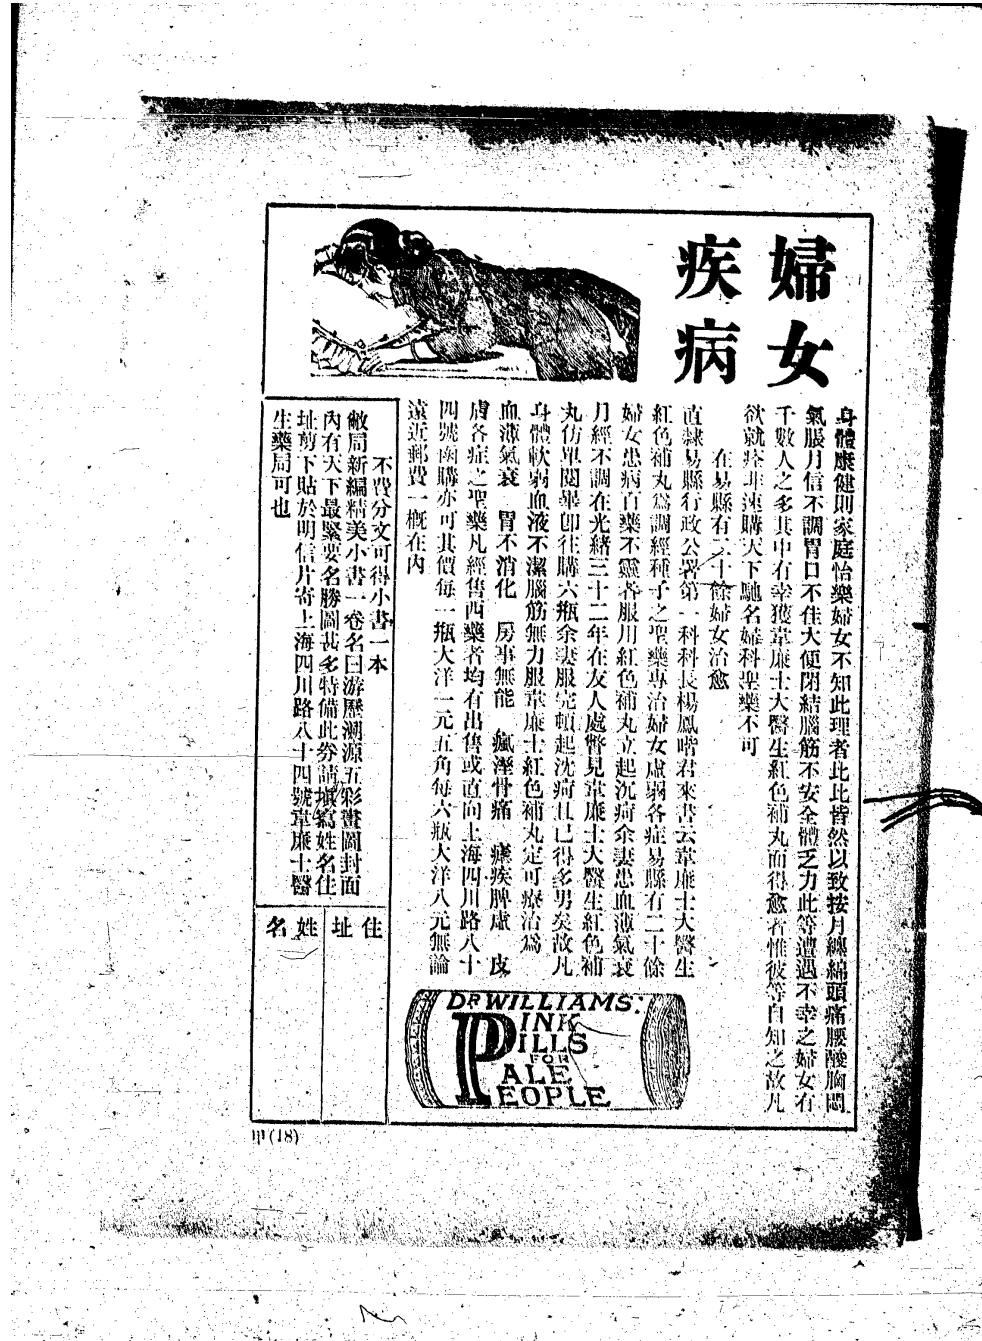 婦女
疾病
身體康健則家庭怡樂婦女不知此理者比比皆然以致按月纏綿頭痛腰酸胸悶
氣脹月信不調胃口不佳大便閉結腦筋不安全體乏力此等遭遇不幸之婦女有
千數人之多其中有幸獲韋廉士大醫生紅色補丸而得愈者惟彼等自知之故凡
欲就痊非速購天下馳名婦科聖藥不可
在易縣有二十餘婦女治愈
直隸易縣行政公署第一科科長楊鳳喈君來書云韋廉士大醫生
紅色補丸爲調經種子之聖藥專治婦女虛弱各症易縣有二十餘
婦女患病百藥不靈者服用紅色補丸立起沉疴余妻患血薄氣衰
月經不調在光緒三十二年在友人處瞥見韋廉士大醫生紅色補
丸仿單閱畢卽往購六瓶余妻服完頓起沈疴且已得多男矣故凡
身體軟弱血液不潔腦筋無力服韋廉士紅色補丸定可療治爲
血薄氣衰 胃不消化 房事無能 瘋溼骨痛 瘧疾脾虛 皮
膚各症之聖藥凡經售西藥者均有出售或直向上海四川路八十
四號函購亦可其價每一瓶大洋一元五角每六瓶大洋八元無論
遠近郵費一概在內
DR WILLIAMS'
PINK
PILLS
FOR
PALE
PEOPLE
不費分文可得小書一本
敝局新編精美小書一卷名曰游歷溯源五彩畫圖封面
內有天下最緊要名勝圖甚多特備此券請塡寫姓名住
址剪下貼於明信片寄上海四川路八十四號韋廉士醫
生藥局可也
住址
姓名
甲(18)